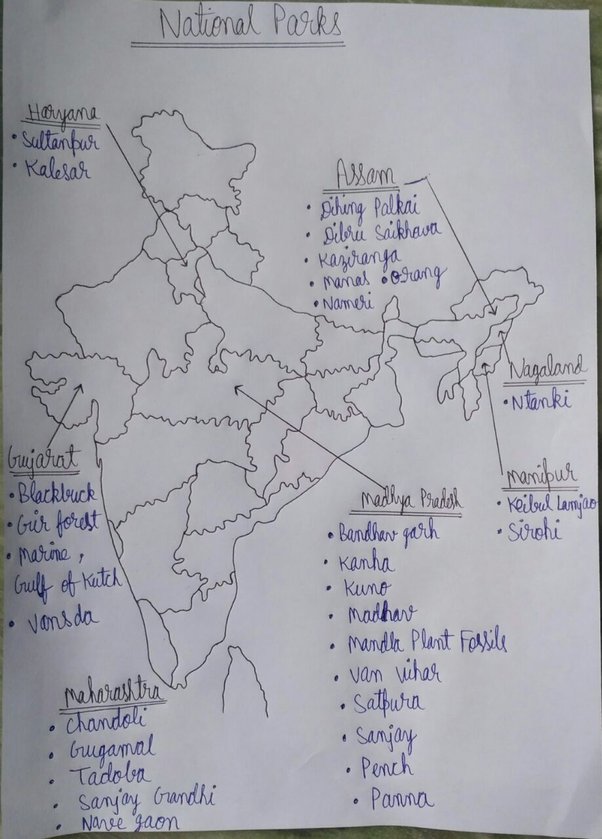 National Parks
Haryana
• Sultanpur
• Kalesar
Assam
• Dihing Palkai
• Dibru Saikhova
• Kaziranga
• Manas • Orang
• Nameri
Nagaland
• Ntanki
Manipur
• Keibul Lamjao
• Sirohi
Gujarat
• Blackbuck
• Gir forest
• Marine,
Gulf of Kutch
• Vansda
Madhya Pradesh
• Bandhav garh
• Kanha
• Kuno
• Madhav
• Mandla Plant Fossils
• Van Vihar
• Satpura
• Sanjay
• Pench
• Panna
Maharashtra
• Chandoli
• Gugamal
• Tadoba
• Sanjay Gandhi
• Nave gaon